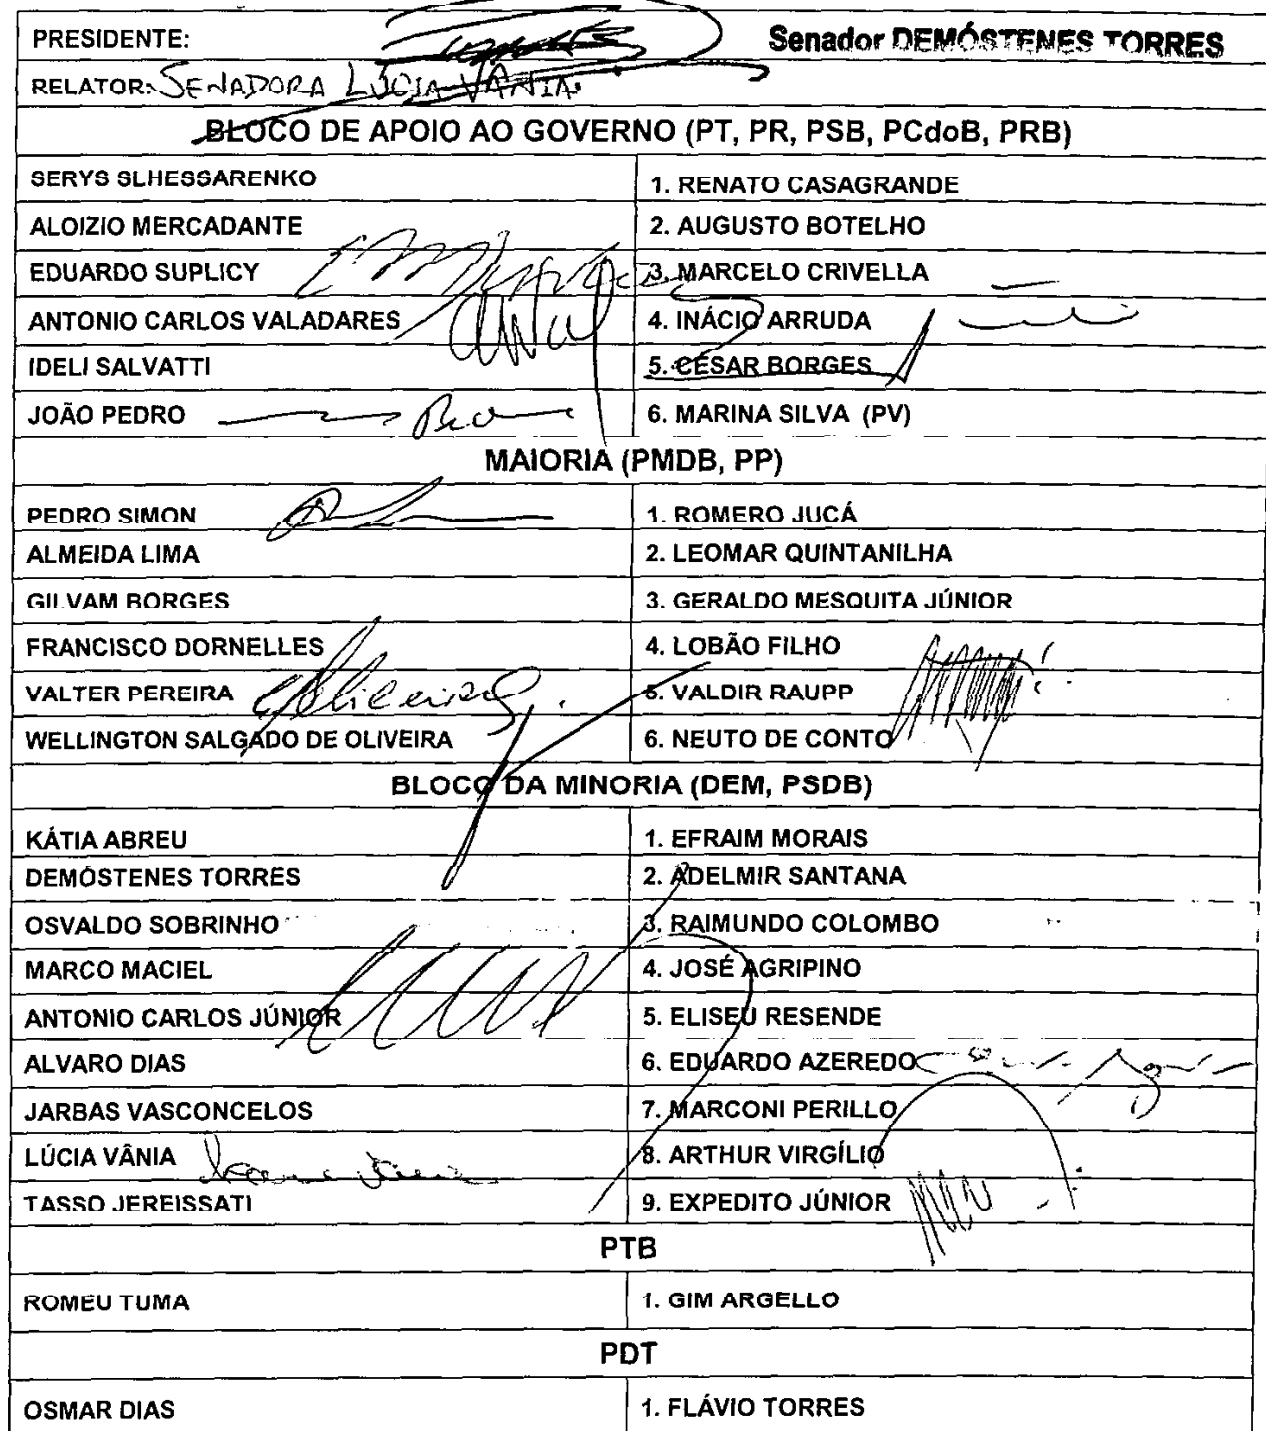 PRESIDENTE: Senador DEMÓSTENES TORRES
RELATOR: SENADORA LÚCIA VÂNIA
BLOCO DE APOIO AO GOVERNO (PT, PR, PSB, PCdoB, PRB)
SERYS SLHESSARENKO 1. RENATO CASAGRANDE
ALOIZIO MERCADANTE 2. AUGUSTO BOTELHO
EDUARDO SUPLICY 3. MARCELO CRIVELLA
ANTONIO CARLOS VALADARES 4. INÁCIO ARRUDA
IDELI SALVATTI 5. CÉSAR BORGES
JOÃO PEDRO 6. MARINA SILVA (PV)
MAIORIA (PMDB, PP)
PEDRO SIMON 1. ROMERO JUCÁ
ALMEIDA LIMA 2. LEOMAR QUINTANILHA
GILVAM BORGES 3. GERALDO MESQUITA JÚNIOR
FRANCISCO DORNELLES 4. LOBÃO FILHO
VALTER PEREIRA 5. VALDIR RAUPP
WELLINGTON SALGADO DE OLIVEIRA 6. NEUTO DE CONTO
BLOCO DA MINORIA (DEM, PSDB)
KÁTIA ABREU 1. EFRAIM MORAIS
DEMÓSTENES TORRES 2. ADELMIR SANTANA
OSVALDO SOBRINHO 3. RAIMUNDO COLOMBO
MARCO MACIEL 4. JOSÉ AGRIPINO
ANTONIO CARLOS JÚNIOR 5. ELISEU RESENDE
ALVARO DIAS 6. EDUARDO AZEREDO
JARBAS VASCONCELOS 7. MARCONI PERILLO
LÚCIA VÂNIA 8. ARTHUR VIRGÍLIO
TASSO JEREISSATI 9. EXPEDITO JÚNIOR
PTB
ROMEU TUMA 1. GIM ARGELLO
PDT
OSMAR DIAS 1. FLÁVIO TORRES